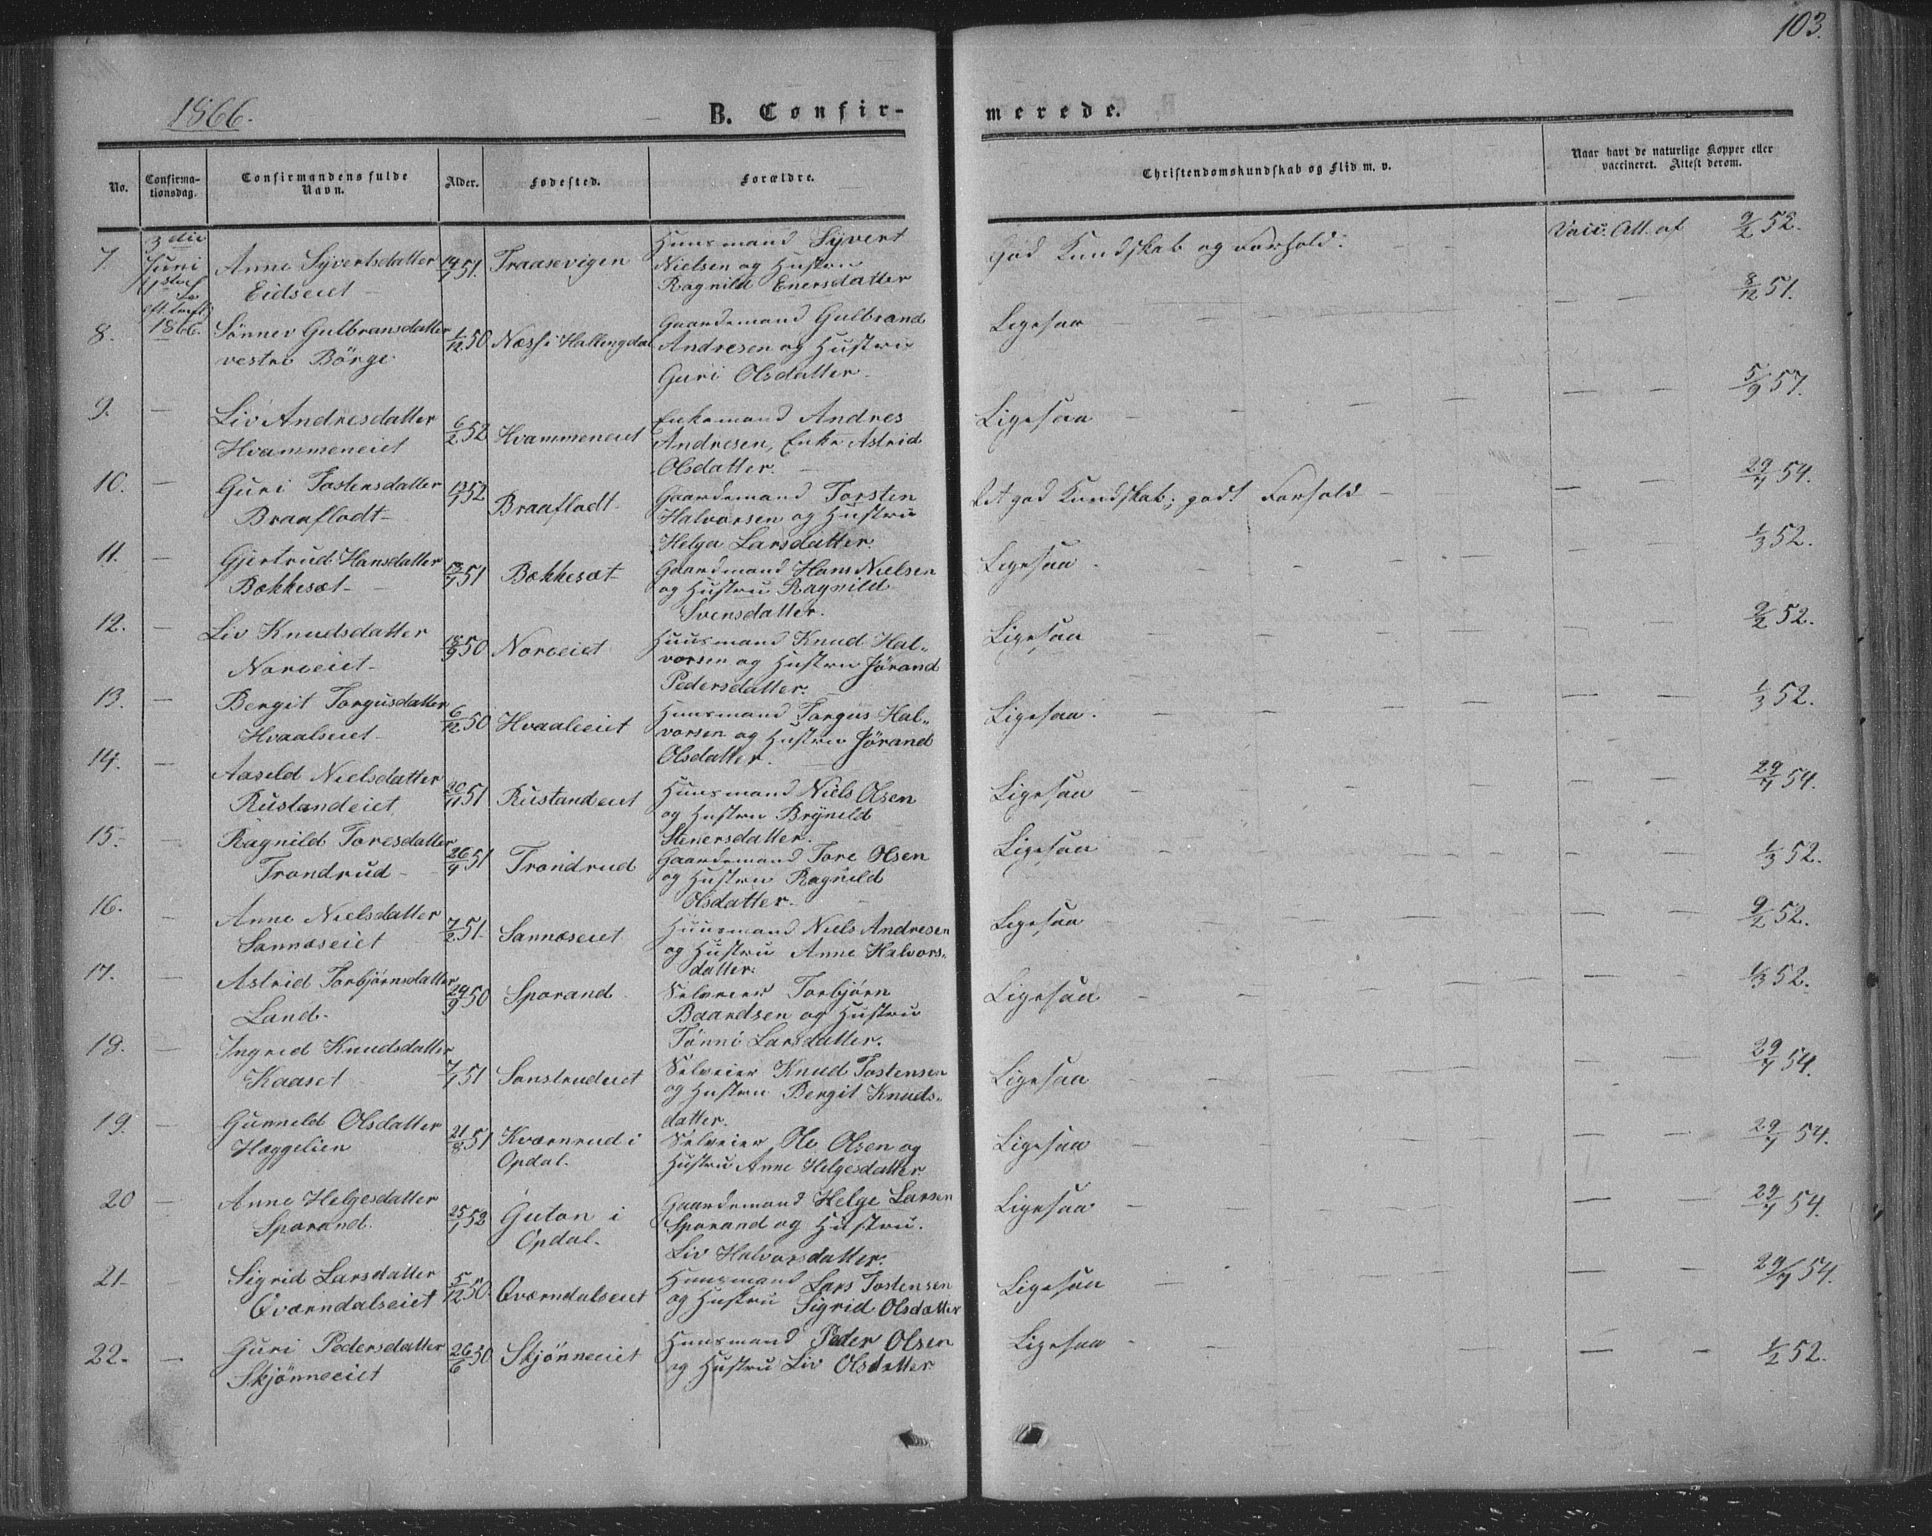 103.
1866.
B. Confir-
merede.
No.
Confirma-
tionsdag.
Confirmandens fulde
Navn.
Alder.
Fødested.
Forældre.
Christendomskundskab og Flid m. v.
Naar havt de naturlige Kopper eller
vaccineret. Attest derom.
7.
3die
Juni
1866.
Anne Syvertsdatter
Eidseiet
51.
Traasevigen
Huusmand Syvert
Nielsen og Hustru
Ragnild Enersdatter
God Kundskab og Forhold.
Vacc. Att. af 9/2 52.
8.
Gulbransdatter
vestre Börge
1/12 50
Næs i Hallingdal
Gaardemand Gulbrand
Andresen og Hustru
Guri Olsdatter.
Ligesaa
8/12 51.
9.
Liv Andresdatter
Hvammeneiet
6/2 52
Hvammeneiet
Enkemand Andres
Andresen, Enke Astrid
Olsdatter.
Ligesaa
5/9 57.
10.
Guri Tostensdatter
Braaflodt
52
Braaflodt
Gaardemand Torsten
Halvorsen og Hustru
Helga Larsdatter.
god Kundskab; godt Forhold
54.
11.
Gjertrud Hansdatter
Bækkesæt
51
Bækkesæt
Gaardmand Hans Nielsen
og Hustru Ragnild
Svensdatter.
Ligesaa
1/3 52.
12.
Liv Knudsdatter
Noreeiet
18/9 50
Noreeiet
Huusmand Knud Hal-
vorsen og Hustru Jörand
Pedersdatter.
Ligesaa
9/2 52.
13.
Bergit Torgusdatter
Hvaalseiet
6/12 50
Hvaaleeiet
Huusmand Torgus Hal-
vorsen og Hustru Jörand
Olsdatter.
Ligesaa.
1/3 52.
14.
Aasild Nielsdatter
Rustandeiet
20/11 51
Rustandeiet
Huusmand Niels Olsen
og Hustru Brynild
Stenersdatter.
Ligesaa
54.
15.
Ragnild Toresdatter
Trondrud
51
Trondrud
Gaardemand Tore Olsen
og Hustru Ragnild
Olsdatter.
Ligesaa
1/3 52.
16.
Anne Nielsdatter
Sannæseiet
7/2 51.
Sannæseiet
Huusmand Niels Andresen
og Hustru Anne Halvors-
datter.
Ligesaa
9/2 52.
17.
Astrid Torbjørnsdatter
Land
24/9 50
Sporand
Selveier Torbjørn
Baardsen og Hustru
Tönni Larsdatter.
Ligesaa
1/3 52.
18.
Ingrid Knudsdatter
Kaaset
51
Sonstrudeiet
Selveier Knud Tostensen
og Hustru Bergit Knuds-
datter.
Ligesaa
54.
19.
Gunnild Olsdatter
Haggelien
21/8 51
Kværnrud i
Opdal.
Selveier Ole Olsen og
Hustru Anne Helgesdatter
Ligesaa
54.
20
Anne Helgesdatter
Sporand.
25/1 52
Guton i
Opdal.
Gaardemand Helge Larsen
Sporand og Hustru
Liv Halvorsdatter.
Ligesaa
54.
21.
Sigrid Larsdatter
Qværndalseiet
5/12 50.
Qværndalseiet
Huusmand Lars Tostensen
og Hustru Sigrid Olsdatter
Ligesaa
54.
22.
Guri Pedersdatter
Skjönneeiet
26/6 50
Skjönneeiet
Huusmand Peder Olsen
og Hustru Liv Olsdatter
Ligesaa
1/2 52.